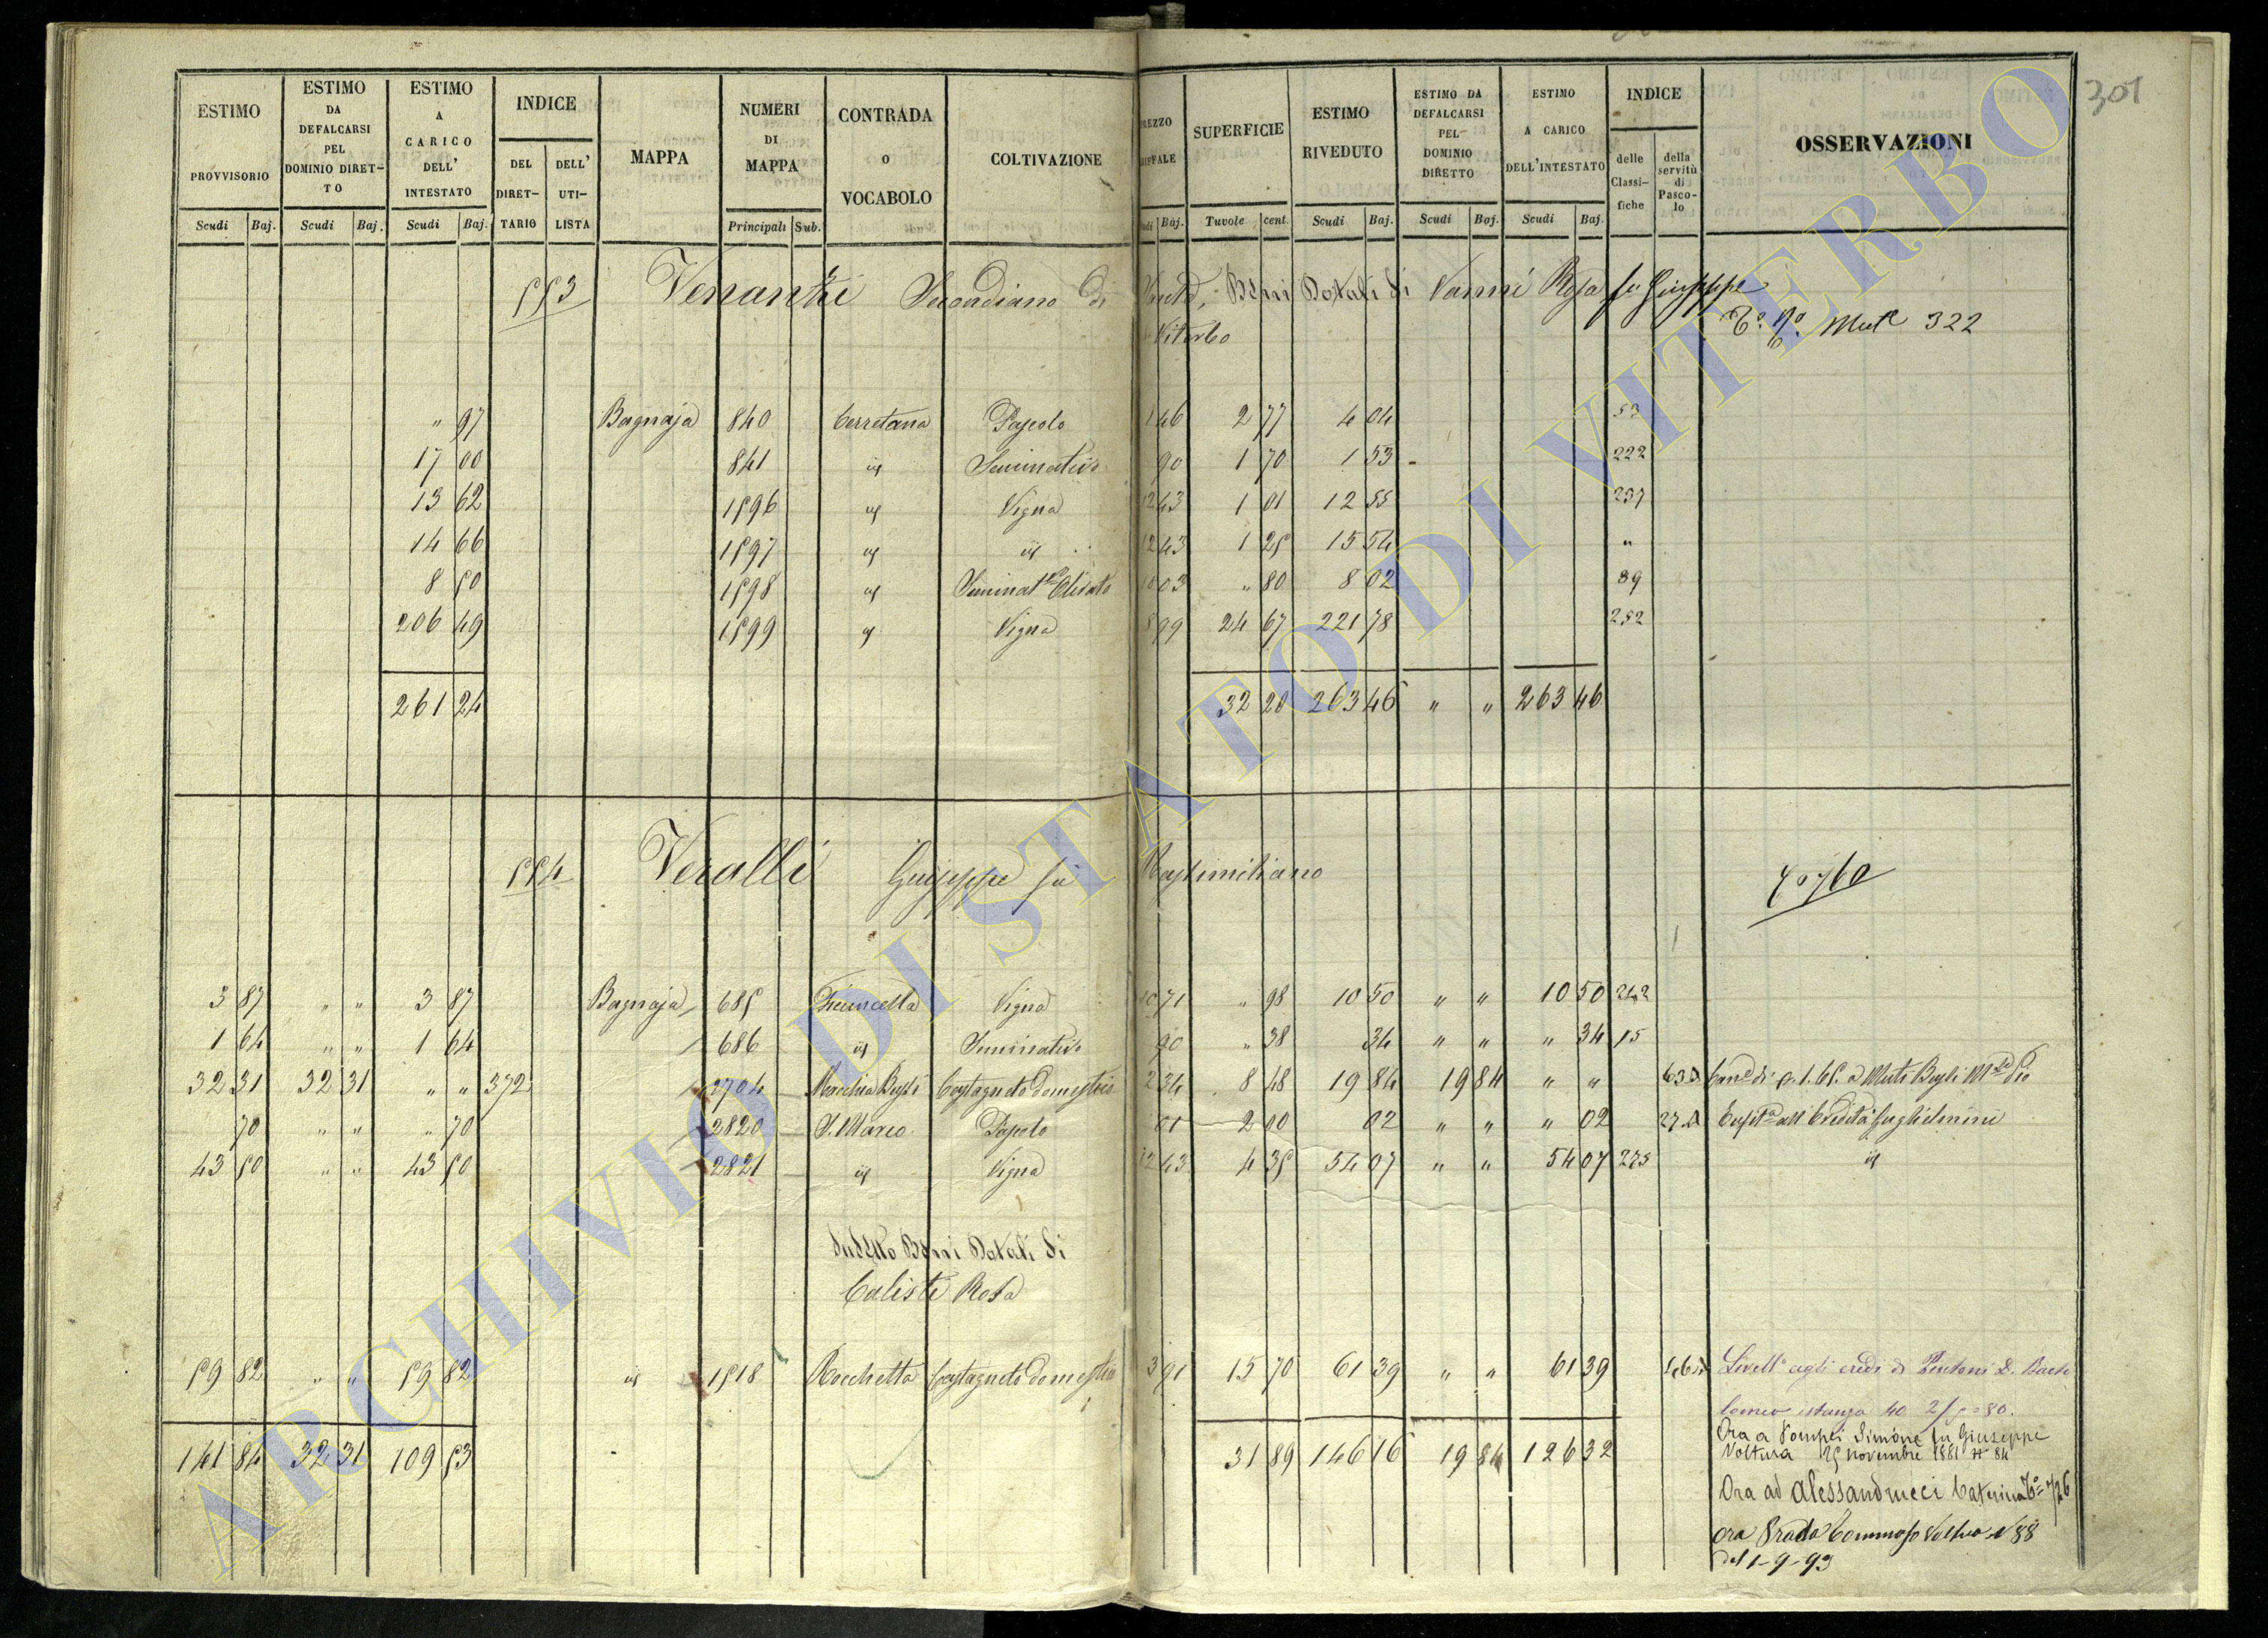 301
ESTIMO PROVVISORIO | ESTIMO DA DEFALCARSI PEL DOMINIO DIRETTO | ESTIMO A CARICO DELL' INTESTATO | INDICE DEL DIRETTARIO | DELL' UTILISTA | MAPPA | NUMERI DI MAPPA | CONTRADA O VOCABOLO | COLTIVAZIONE | SUPERFICIE | ESTIMO RIVEDUTO | ESTIMO DA DEFALCARSI PEL DOMINIO DIRETTO | ESTIMO A CARICO DELL'INTESTATO | INDICE delle Classifiche | della servitù di Pascolo | OSSERVAZIONI
Scudi | Baj. | Scudi | Baj. | Scudi | Baj. | Principali | Sub. | Baj. | Tavole | cent. | Scudi | Baj. | Scudi | Baj. | Scudi | Baj.
553 Venanzi Secondiano di Beni Dotali di Vanni Rosa fu Giuseppe
Viterbo
Mut.e 322
" 97 Bagnaja 840 Cerretana Pascolo 1 46 2 77 4 04 53
17 00 841 id Seminativo 90 1 70 1 53 222
13 62 1596 id Vigna 12 43 1 01 12 55 237
14 66 1597 id id 12 43 1 25 15 54 "
8 50 1598 id Seminat.vo Olivato 10 03 " 80 8 02 89
206 49 1599 id Vigna 8 99 24 67 221 78 252
261 24 32 20 263 46 " " 263 46
554 Veralli Giuseppe fu Massimiliano
To 760
3 87 " " 3 87 Bagnaja 685 Ficuncella Vigna 10 71 " 98 10 50 " " 10 50 242
1 64 " " 1 64 686 id Seminativo 90 " 38 34 " " " 34 15
32 31 32 31 " " 372 2704 Castagneto domestico 2 34 8 48 19 84 19 84 " " 63
70 " " " 70 2820 S. Marco Pascolo 01 2 00 02 " " " 02 27 all' Eredità Guglielmini
43 50 " " 43 50 2821 id Vigna 12 43 4 35 54 07 " " 54 07 275 id
Sudetto Beni Dotali di
Calisti Rosa
59 82 " " 59 82 id 1518 Rocchetta Castagneto domestico 3 91 15 70 61 39 " " 61 39 46 Livell.o agli eredi di D. Barto
lomeo istanza 40
Ora a Pompei Simone fu Giuseppe
Voltura 25 novembre 1881 N 84
141 84 32 31 109 53 31 89 146 16 19 84 126 32
Ora ad Alessandrucci Caterina To 726
ora Prada Tommaso Voltura N 88
del 1-9-93
ARCHIVIO DI STATO DI VITERBO